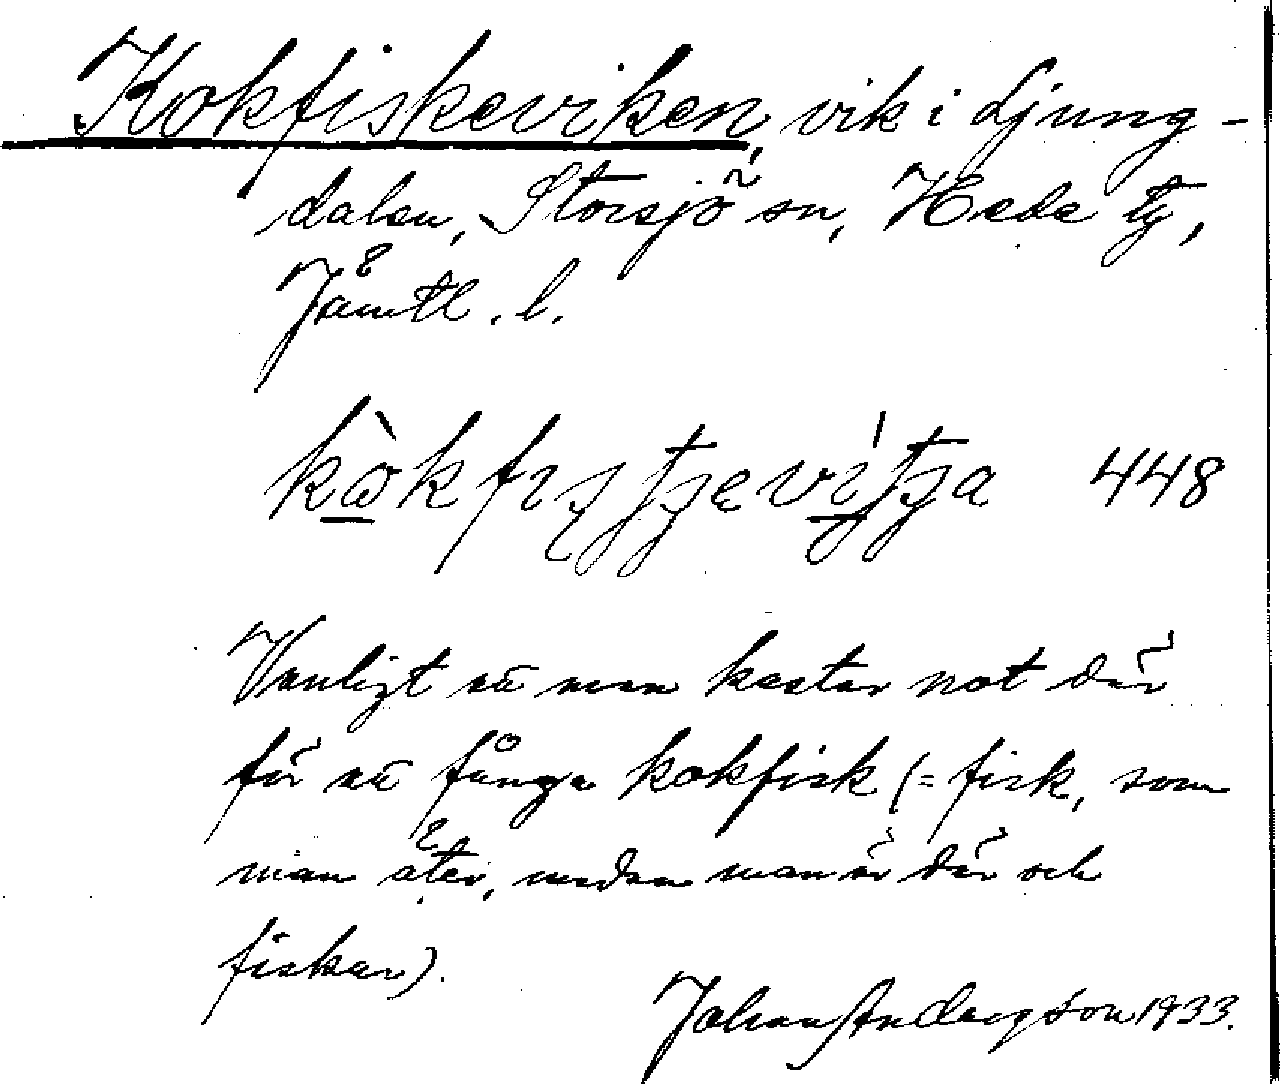 Kokfiskeviken, vik i Ljung-
dalen, Storsjö sn, Hede tg,
Jämtl. l.
448
Vanligt att man kastar not där
för att fånga kokfisk (= fisk, som
man äter, medan man är där och
fiskar).
Johan Andersson 1933.